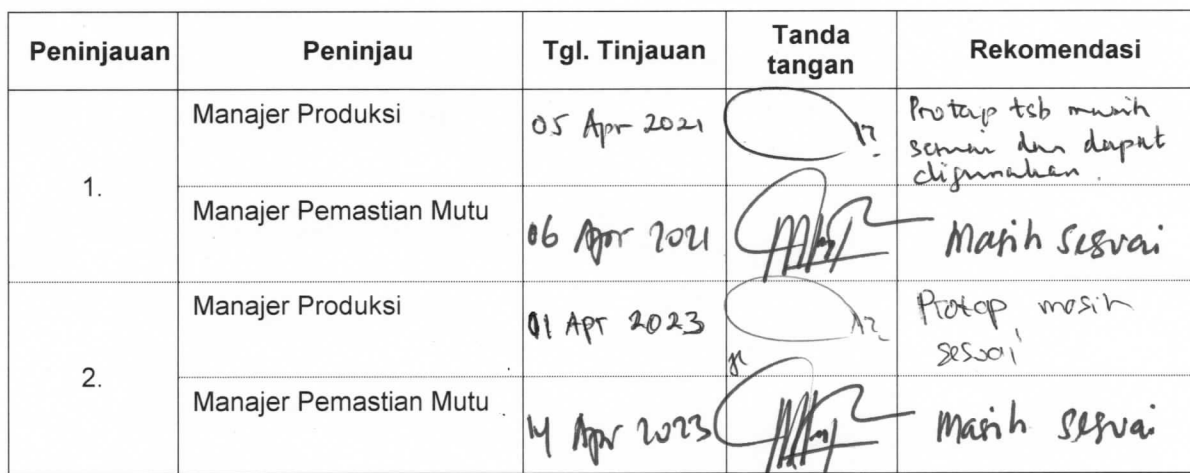 Peninjauan Peninjau Tgl. Tinjauan Tanda tangan Rekomendasi
1.
Manajer Produksi 05 Apr 2021
Protap tsb masih
sesuai dan dapat
digunakan.
Manajer Pemastian Mutu 06 Apr 2021 Masih sesuai
2.
Manajer Produksi 01 Apr 2023
Protap masih
sesuai
Manajer Pemastian Mutu 14 Apr 2023 Masih sesuai